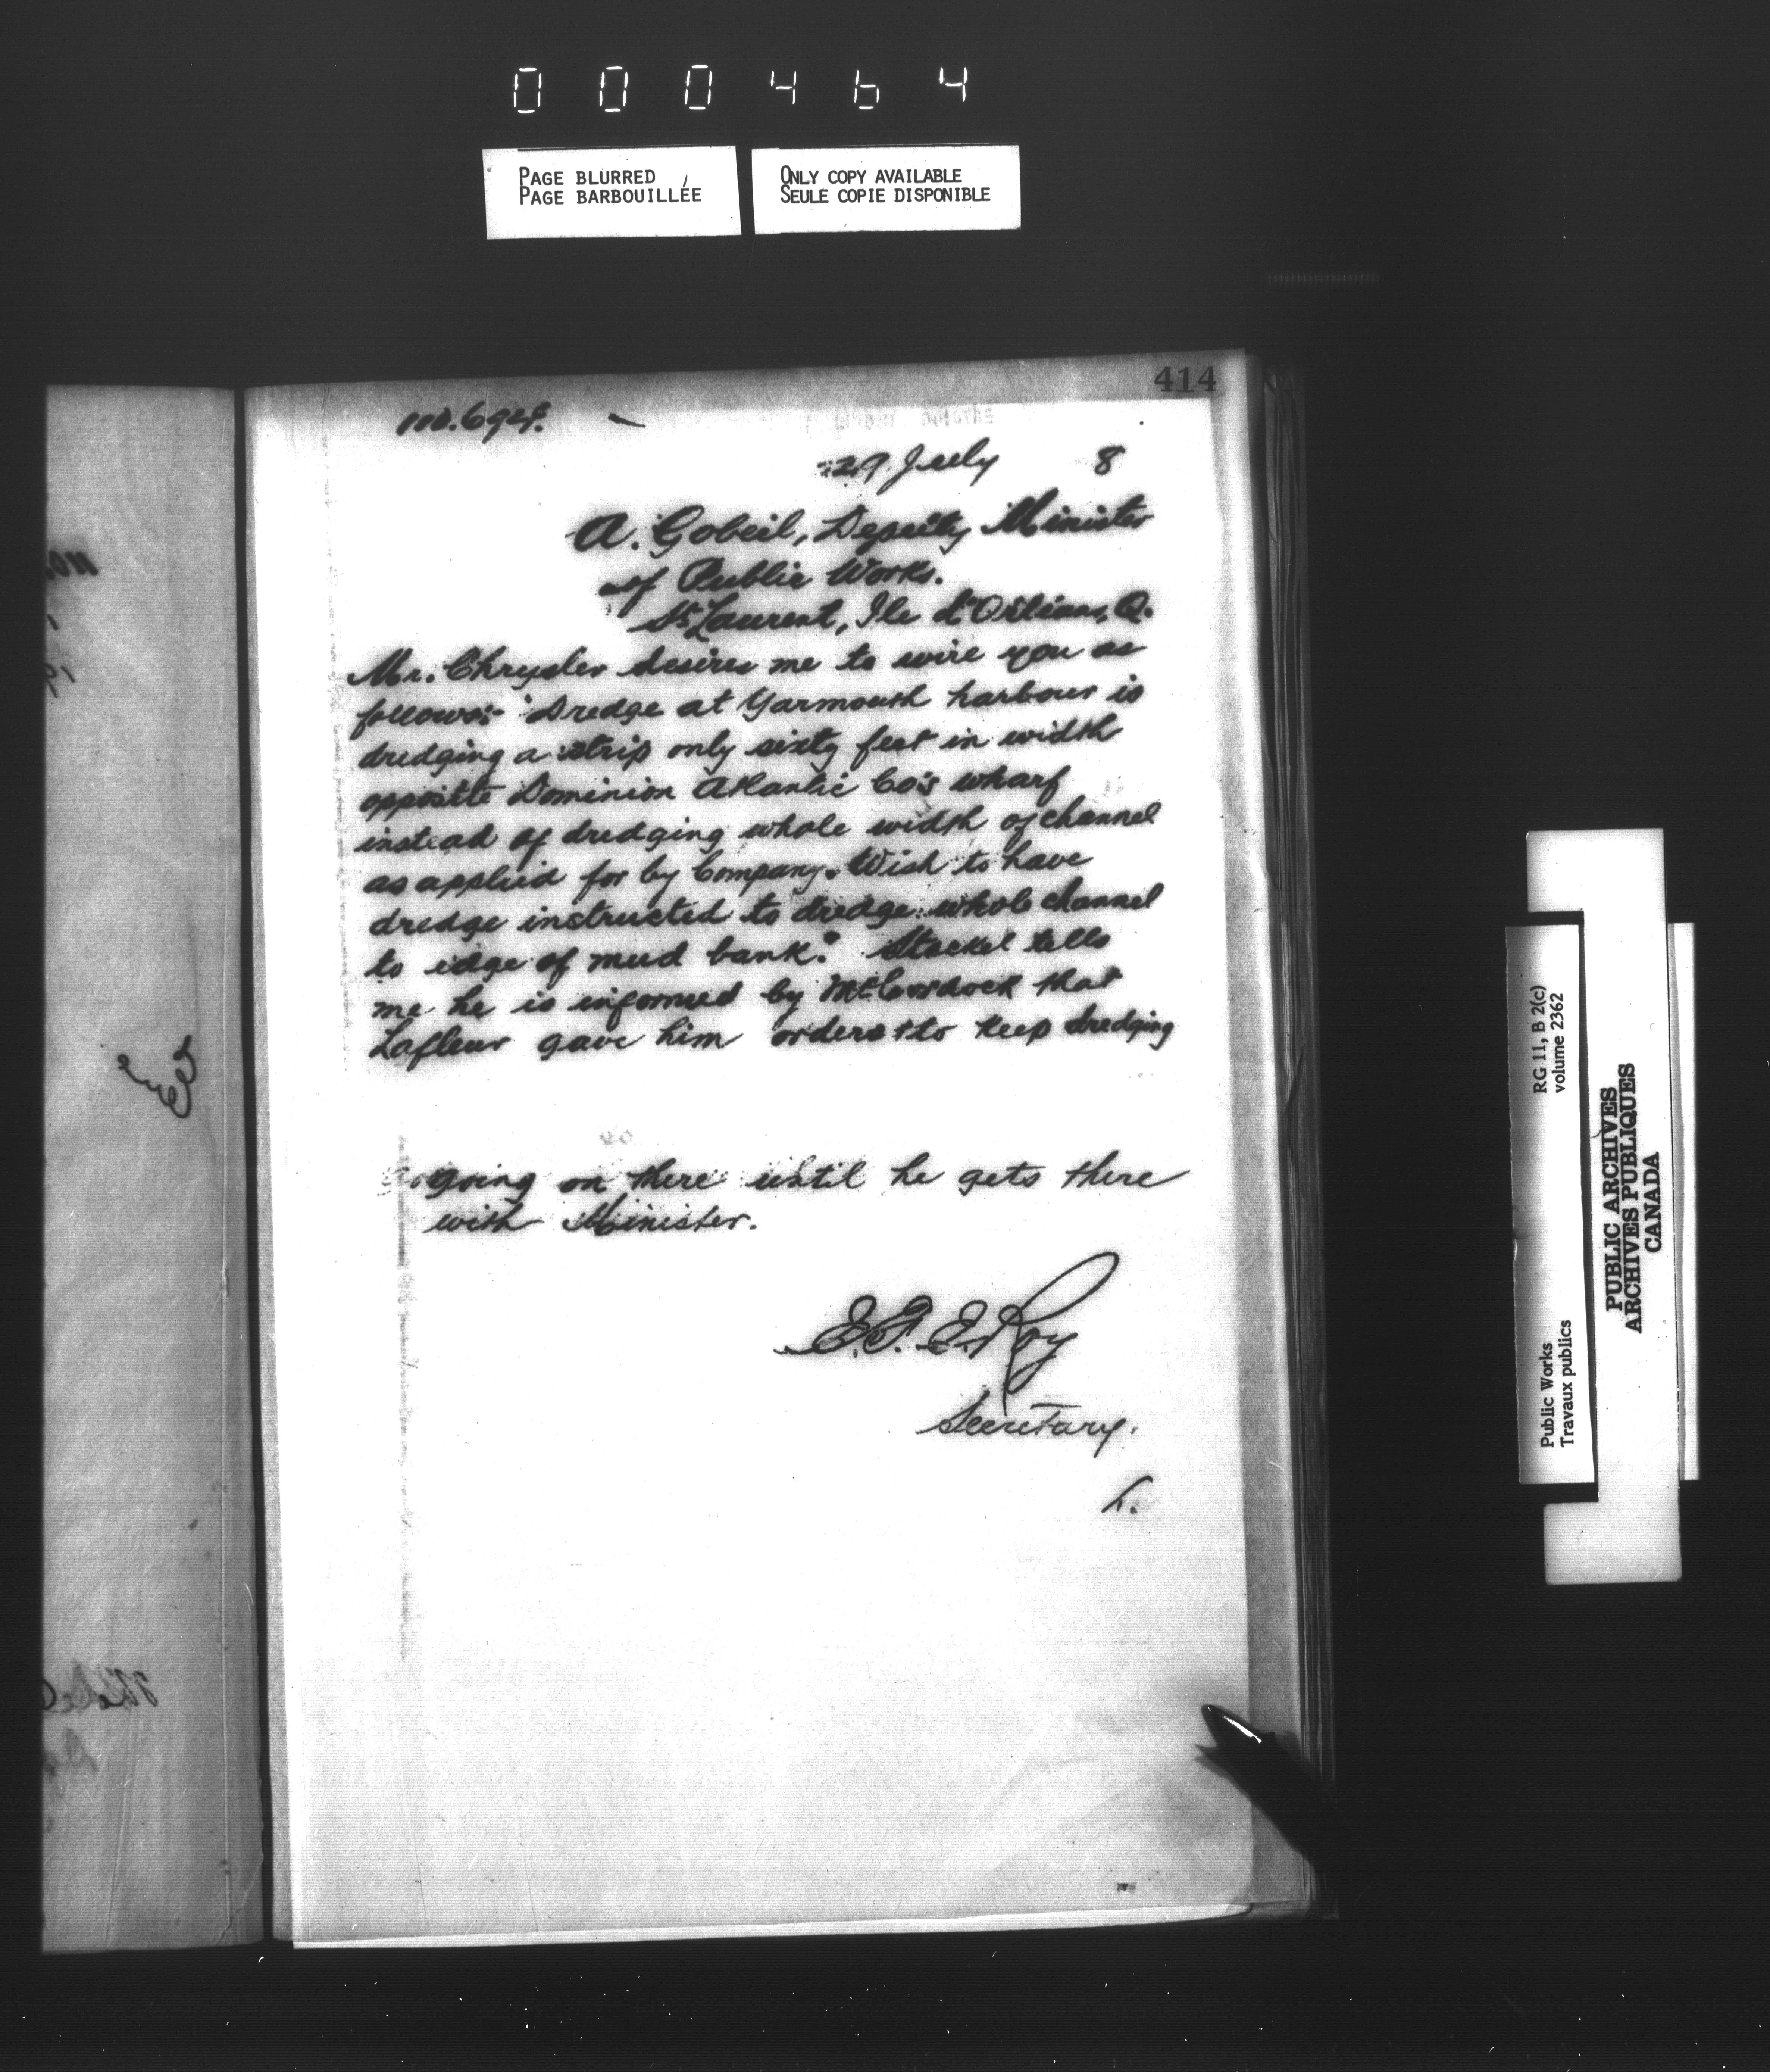 000464
PAGE BLURRED
PAGE BARBOUILLÉE
ONLY COPY AVAILABLE
SEULE COPIE DISPONIBLE
414
29 July 8
A. Gobeil, Deputy Minister
of Public Works.
St. Laurent, Ile d'Orleans, Q.
Mr. Chrysler desires me to wire you as
follows:- "Dredge at Yarmouth harbour is
dredging a strip only sixty feet in width
opposite Dominion Atlantic Co's wharf
instead of dredging whole width of channel
as applied for by Company. Wish to have
dredge instructed to dredge whole channel
to edge of mud bank." Steckel tells
me he is informed by that
Lafleur gave him orders to keep dredging
going on there until he gets there
with Minister.
E. F. E. Roy
Secretary.
RG 11, B 2(c)
volume 2362
Public Works
Travaux publics
PUBLIC ARCHIVES
ARCHIVES PUBLIQUES
CANADA